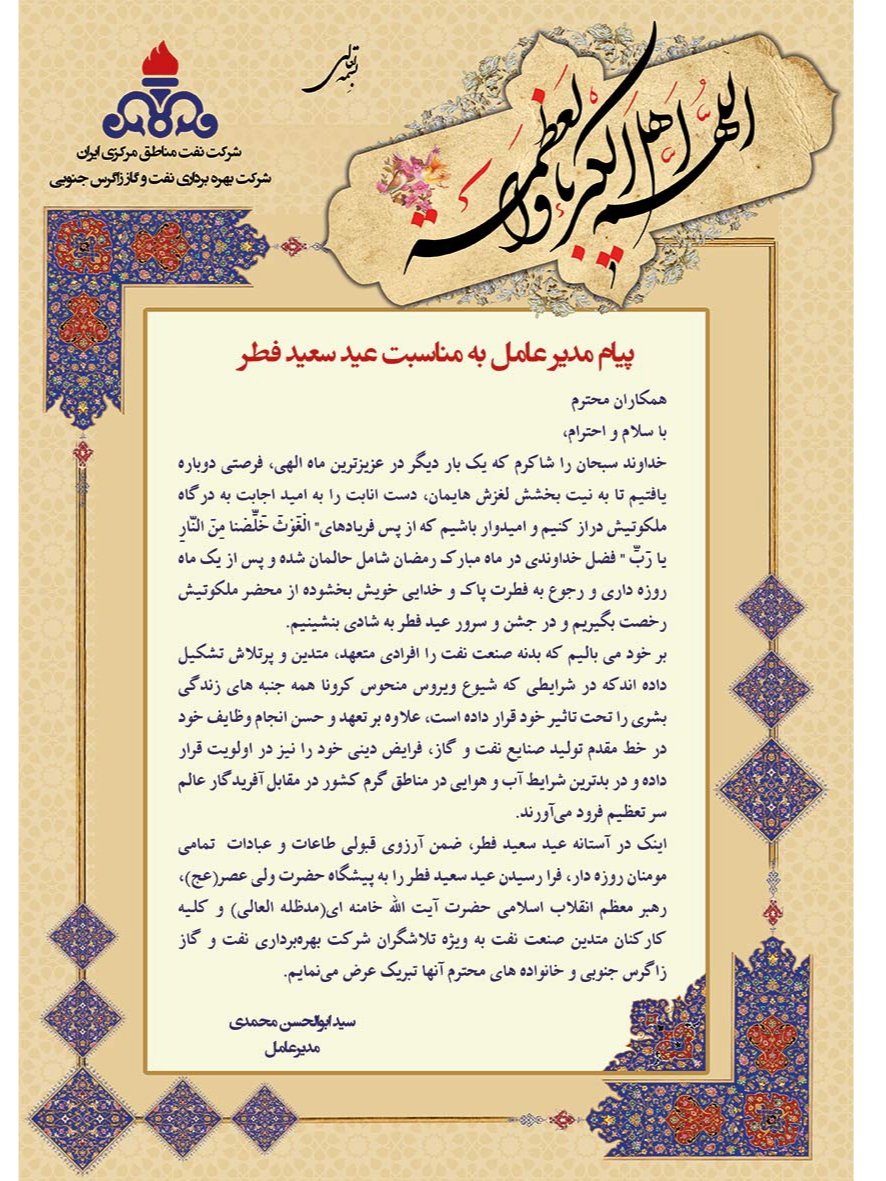 بسمه تعالی
اللهم اهل الکبریاء و العظمة
شرکت نفت مناطق مرکزی ایران
شرکت بهره برداری نفت و گاز زاگرس جنوبی
پیام مدیر عامل به مناسبت عید سعید فطر
همکاران محترم
با سلام و احترام،
خداوند سبحان را شاکرم که یک بار دیگر در عزیزترین ماه الهی، فرصتی دوباره
یافتیم تا به نیت بخشش لغزش هایمان، دست انابت را به امید اجابت به درگاه
ملکوتیش دراز کنیم و امیدوار باشیم که از پس فریادهای" الْغَوْثَ خَلِّصْنا مِنَ النّارِ
یا رَبِّ " فضل خداوندی در ماه مبارک رمضان شامل حالمان شده و پس از یک ماه
روزه داری و رجوع به فطرت پاک و خدایی خویش بخشوده از محضر ملکوتیش
رخصت بگیریم و در جشن و سرور عید فطر به شادی بنشینیم.
بر خود می بالیم که بدنه صنعت نفت را افرادی متعهد، متدین و پرتلاش تشکیل
داده اندکه در شرایطی که شیوع ویروس منحوس کرونا همه جنبه های زندگی
بشری را تحت تاثیر خود قرار داده است، علاوه بر تعهد و حسن انجام وظایف خود
در خط مقدم تولید صنایع نفت و گاز، فرایض دینی خود را نیز در اولویت قرار
داده و در بدترین شرایط آب و هوایی در مناطق گرم کشور در مقابل آفریدگار عالم
سر تعظیم فرود می‌آورند.
اینک در آستانه عید سعید فطر، ضمن آرزوی قبولی طاعات و عبادات تمامی
مومنان روزه دار، فرا رسیدن عید سعید فطر را به پیشگاه حضرت ولی عصر(عج)،
رهبر معظم انقلاب اسلامی حضرت آیت الله خامنه ای(مدظله العالی) و کلیه
کارکنان متدین صنعت نفت به ویژه تلاشگران شرکت بهره‌برداری نفت و گاز
زاگرس جنوبی و خانواده های محترم آنها تبریک عرض می‌نمایم.
سید ابوالحسن محمدی
مدیرعامل